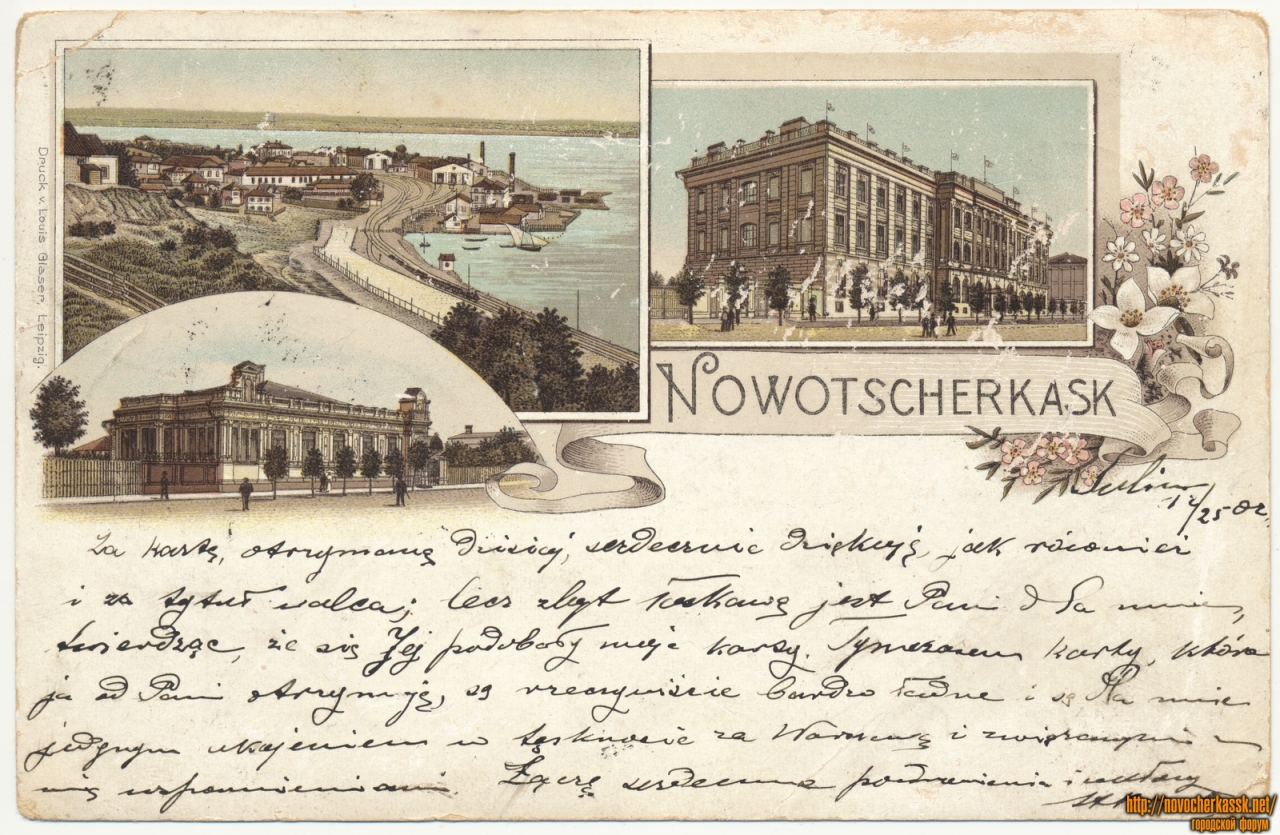 Druck v. Louis Glaser, Leipzig.
NOWOTSCHERKASK
12/25 02.
Za kartę, otrzymaną dzisiaj, serdecznie dziękuję, jak również
i za tytuł walca; lecz zbyt łaskawą jest Pani dla mnie,
twierdząc, że się Jej podobały moje karty. Tymczasem karty, które
ja od Pani otrzymuję, są rzeczywiście bardzo ładne i są dla mnie
jedynym ukojeniem w tęsknocie za Warszawą i związanymi z
nią wspomnieniami. Łączę serdeczne pozdrowienia i ukłony
http://novocherkassk.net/
городской форум